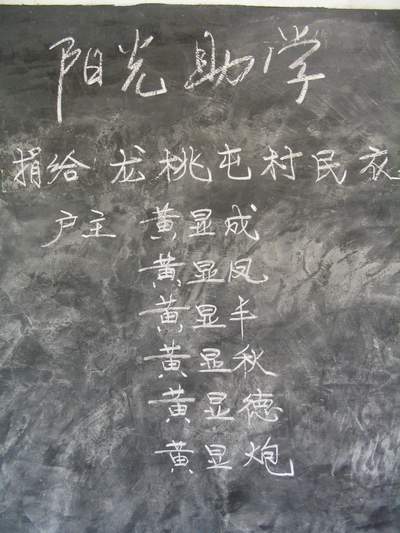 阳光助学
捐给龙桃屯村民衣
户主 黄显成
黄显凤
黄显丰
黄显秋
黄显德
黄显炮